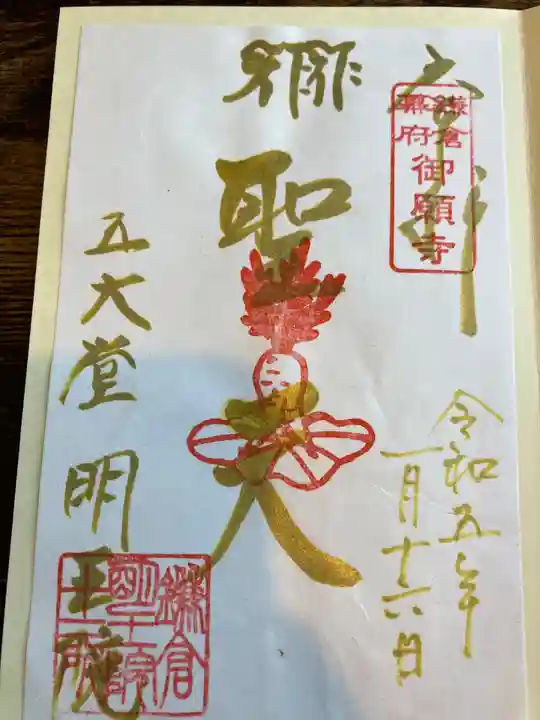 奉拝
鎌倉
幕府
御願寺
令和五年
一月十六日
聖天
五大堂 明王院
鎌倉